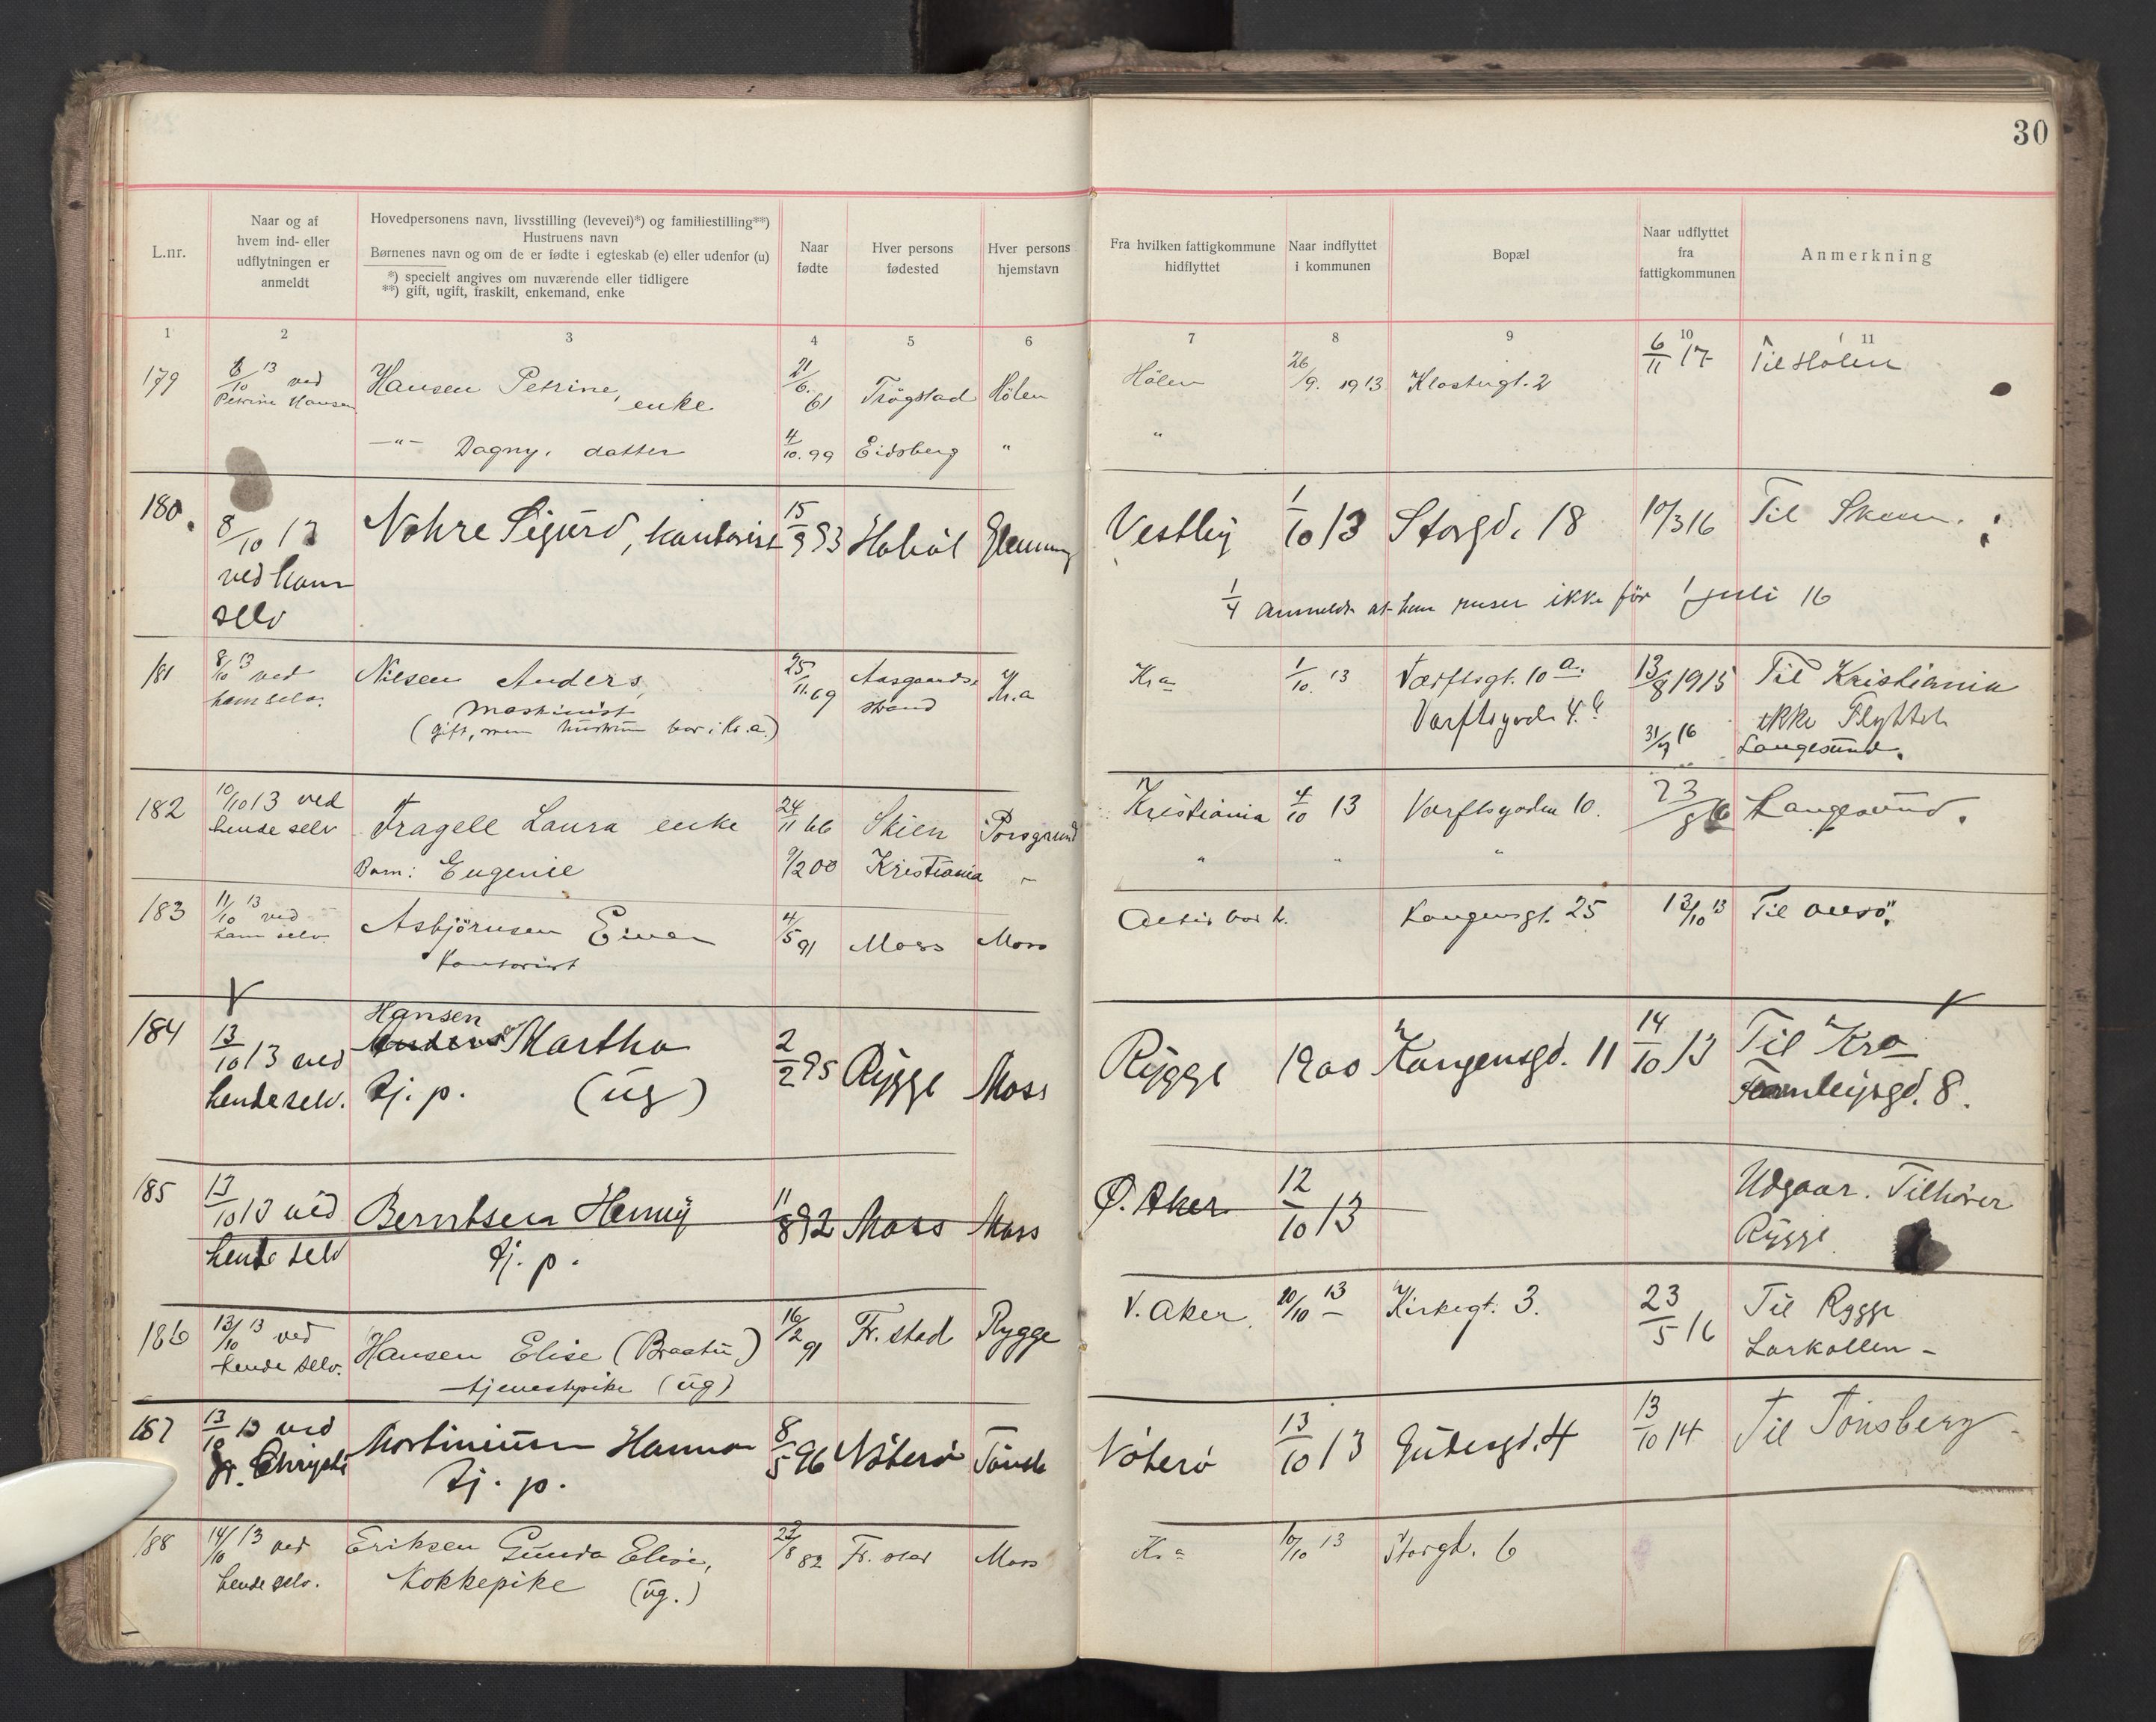 30
L.nr.
Naar og af
hvem ind- eller
udflytningen er
anmeldt
Hovedpersonens navn, livsstilling (levevei)*) og familiestilling**)
Hustruens navn
Børnenes navn og om de er fødte i egteskab (e) eller udenfor (u)
*) specielt angives om nuværende eller tidligere
**) gift, ugift, fraskilt, enkemand, enke
Naar
fødte
Hver persons
fødested
Hver persons
hjemstavn
Fra hvilken fattigkommune
hidflyttet
Naar indflyttet
i kommunen
Bopæl
Naar udflyttet
fra
fattigkommunen
Anmerkning
1 2 3 4 5 6 7 8 9 10 11
179 8/10 13 ved Hansen Petrine, 21/6. 61 Trøgstad Hölen Hölen 26/9. 1913 Klostergt. 2 6/11 17 Til Hölen
Petrine Hansen enke
-"- Dagny, datter 4/10. 99 Eidsberg " "
180. 8/10 13 Nohre Sigurd, kontorist 15/9 93 Hobøl Glemming Vestby 1/10 13 Storgd. 18 10/3 16 Til
ved ham
selv
1/4 anmeldt at han reiser ikke før 1 juli 16
181 8/10 13 ved Nilsen Anders, 25/11. 69 Aasgaards- Kr.a Kra 1/10. 13 Værftsgt. 10 a. 13/8 1915 Til Kristiania
ham selv. Maskinist strand Varftsgaden 4. ikke Flyttet
(gift, men hustru bor i Kr.a.) 31/7 16 Langesund.
182 10/10 13 ved Fragell Laura enke 24/11 66 Skien Porsgrund Kristiania 4/10 13 Varftsgaden 10. 23/8 16 Langesund.
hende selv
Barn: Eugenie 9/2 00 Kristiania " " " "
183 11/10 13 ved Asbjörnsen Einar 4/5 91 Moss Moss Altid bor h. Kongensgt. 25 13/10 13 Til
ham selv. Kontorist
184 13/10 13 ved Hansen Martha 2/2 95 Rygge Moss Rygge 1900 Kongensgd. 11 14/10 13 Til Kra
hende selv. Tj. p. (ug) 8.
185 13/10 13 ved Berntsen Henny 11/8 92 Moss Moss Ø. Aker 12/10 13 Udgaar. Tilhører
hende selv Tj. p. Rygge
186 13/10 13 ved Hansen Elise (Braatu) 16/2 91 Fr. stad Rygge V. Aker. 20/10 13 Kirkegt. 3. 23/5 16 Til Rygge
hende selv. tjenestpike (ug) Larkollen -
187 13/10 13 ved Martiniusen Hanna 8/5 96 Nöterö Tönsb Nöterö 13/10 13 Gudesgd. 4 13/10 14 Til Tönsberg
fr. Tj. p.
188 14/10 13 ved Eriksen Gunda Elise, 22/8 82 Fr. stad Moss Kra 10/10 13 Storgt. 6
hende selv. Kokkepike (ug.)